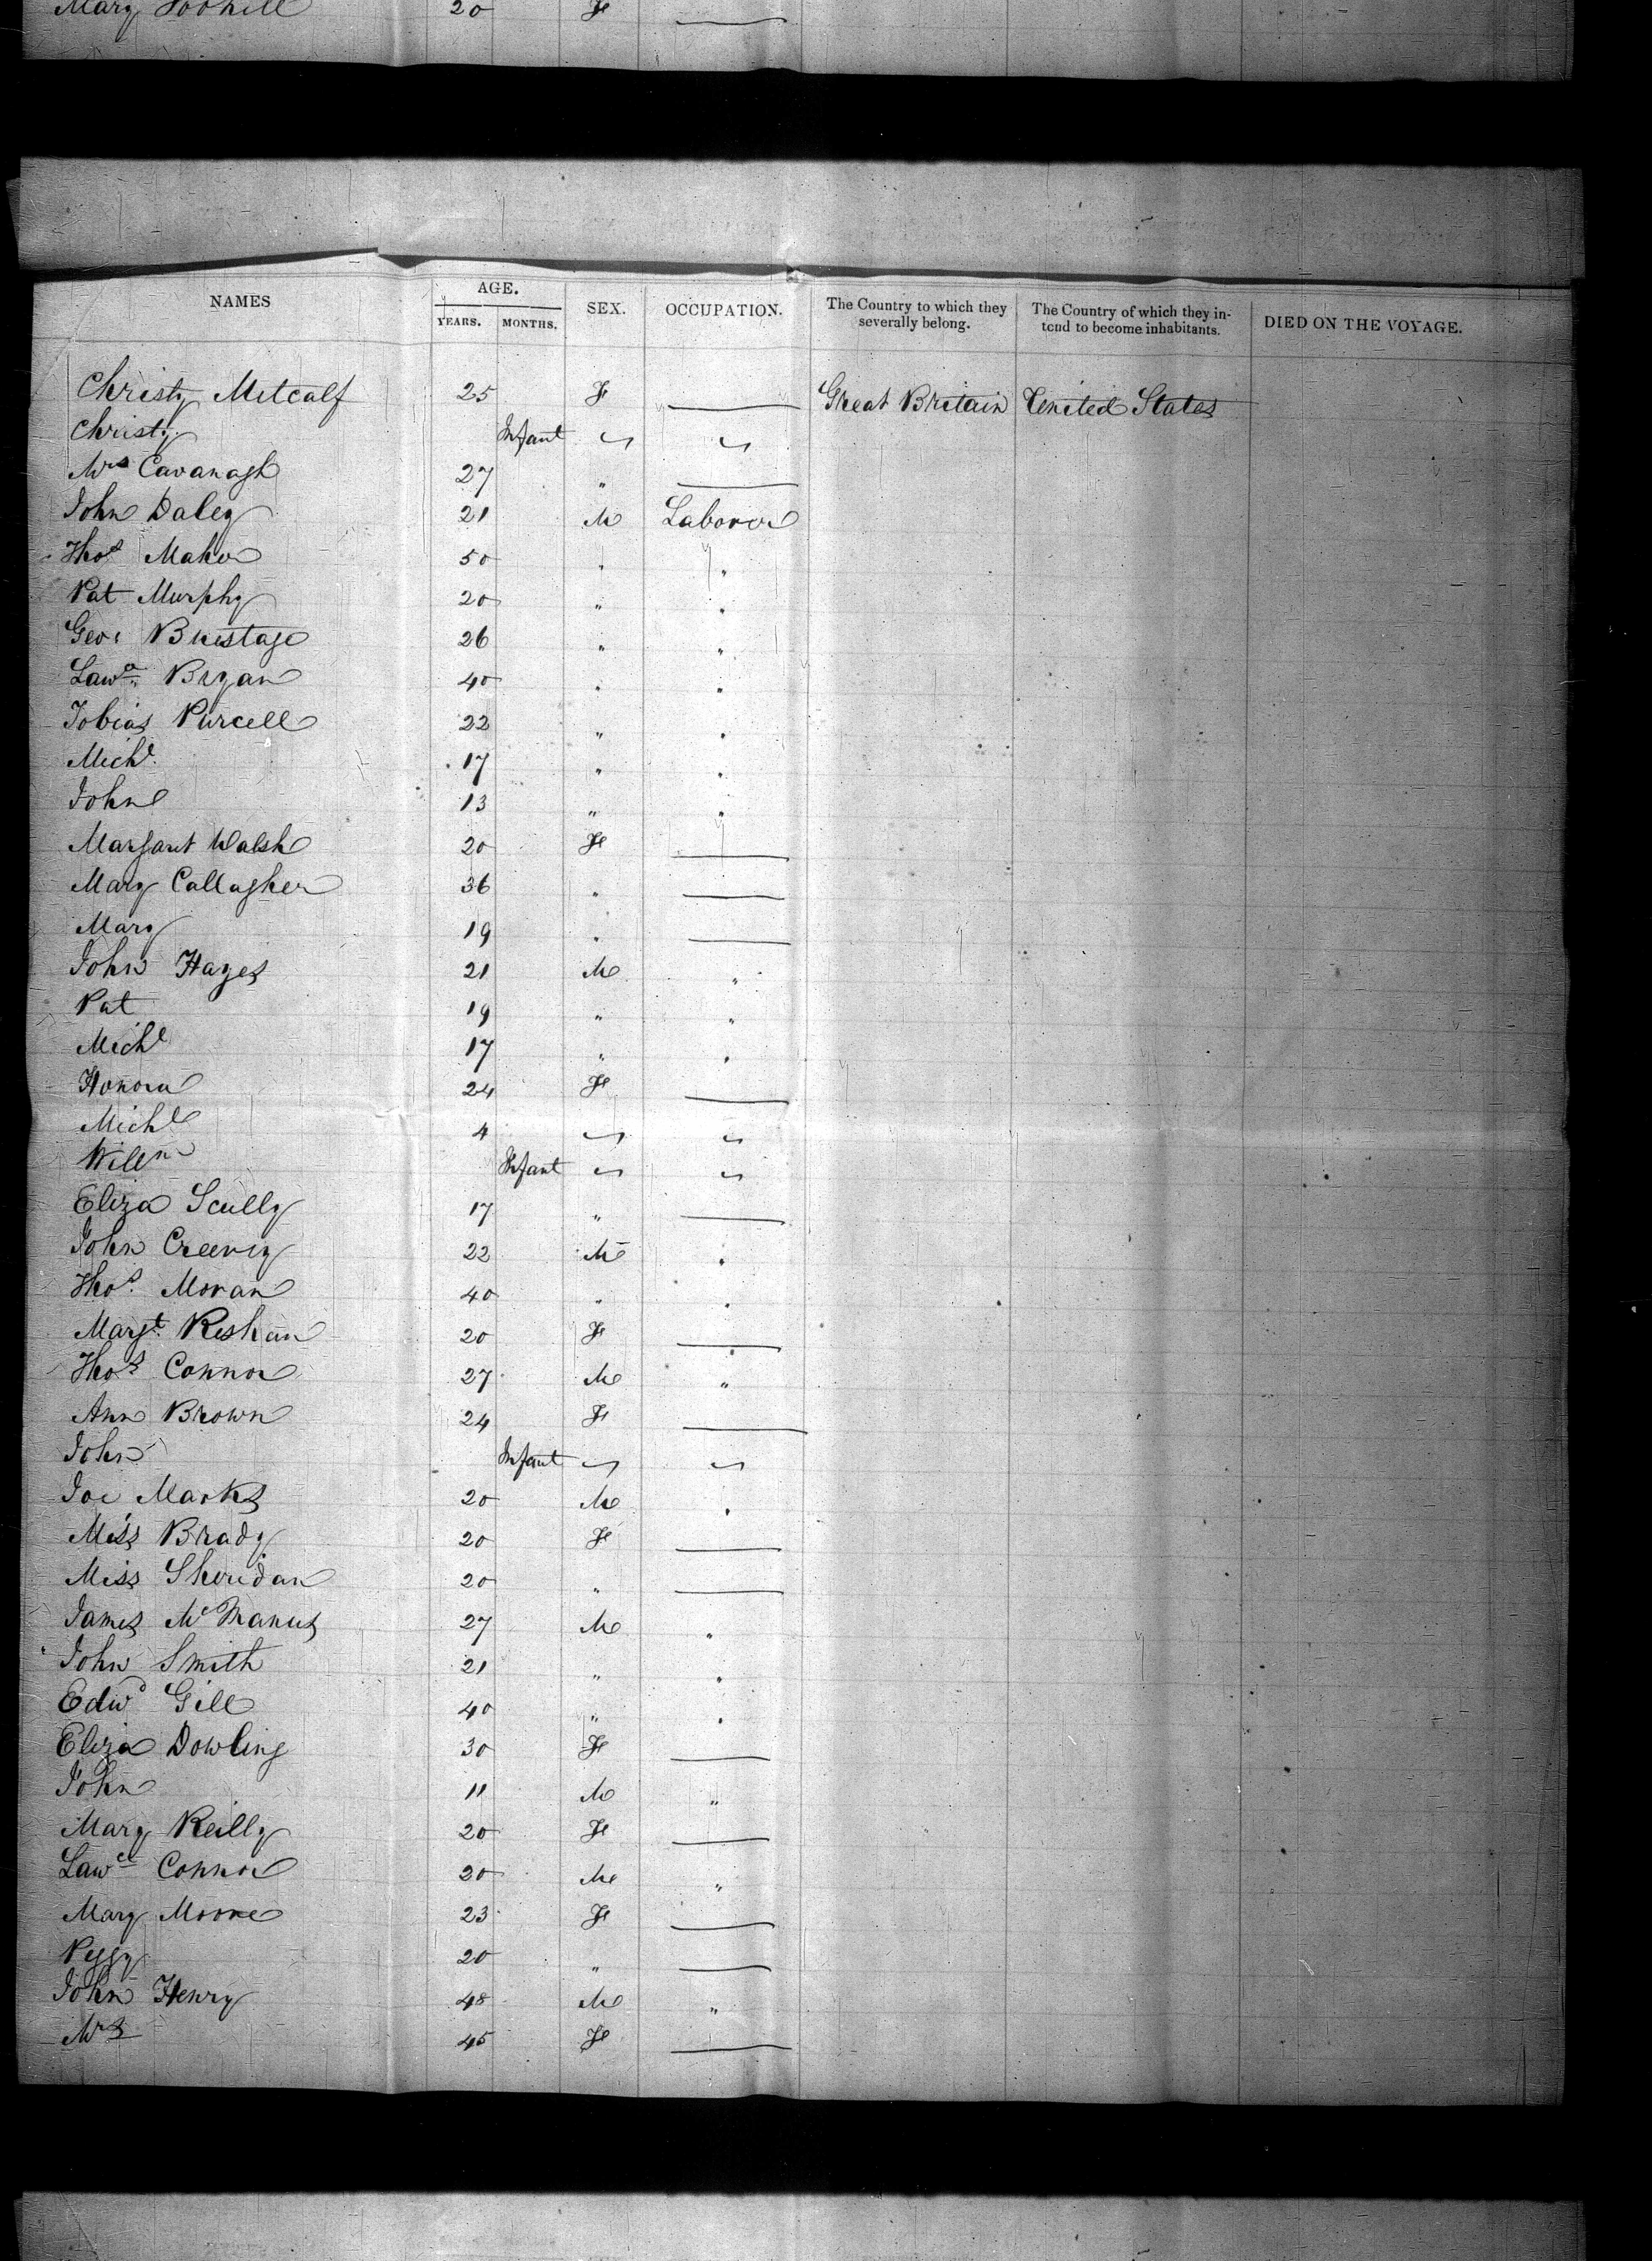 Mary Toohill 20 F
NAMES AGE. YEARS. MONTHS. SEX. OCCUPATION. The Country to which they severally belong. The Country of which they intend to become inhabitants. DIED ON THE VOYAGE.
Christy Metcalf 25 F — Great Britain United States
Christy Infant
Mrs Cavanagh 27 " —
John Daley 21 M Laborer
Thos Maher 50 " "
Pat Murphy 20 " "
Geo: 26 " "
Lawce Bryan 40 " "
Tobias Purcell 22 " "
Michl 17 " "
John 13 " "
Margaret Walsh 20 F —
Mary Callagher 36 " —
Mary 19 " —
John Hayes 21 M "
Pat 19 " "
Michl 17 " "
Honora 24 F —
Michl 4
Willm Infant
Eliza Scully 17 " —
John Creevey 22 M "
Thos Moran 40 " "
Margt 20 F —
Thos Connor 27 M "
Ann Brown 24 F —
John Infant
Joe Marks 20 M "
Miss Brady 20 F —
Miss Sheridan 20 " —
James McManus 27 M "
John Smith 21 " "
Edwd Gill 40 " "
Eliza Dowling 30 F —
John 11 M "
Mary Reilly 20 F —
Lawce Connor 20 M "
Mary Moore 23 F —
Peggy 20 " —
John Henry 48 M "
Mrs 45 F —